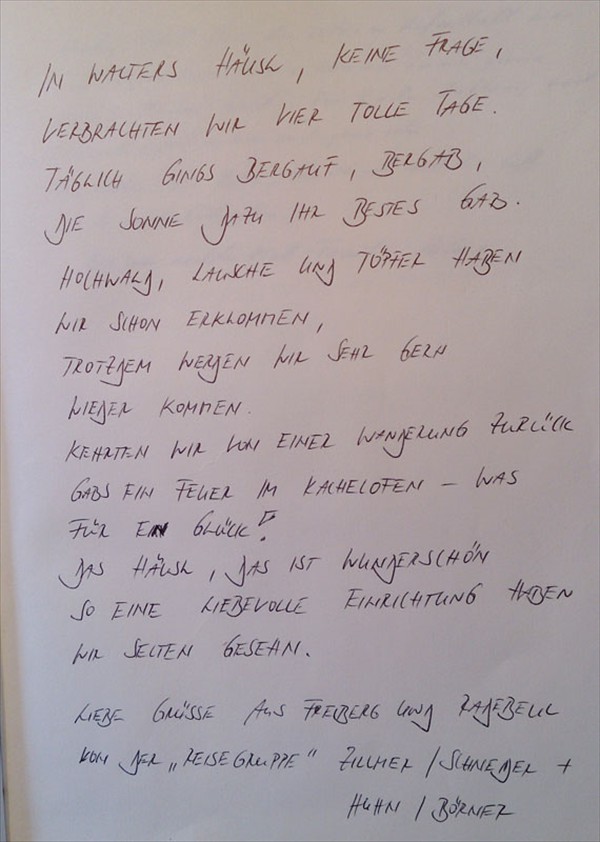 IN WALTERS HÄUSL, KEINE FRAGE,
VERBRACHTEN WIR VIER TOLLE TAGE.
TÄGLICH GINGS BERGAUF, BERGAB,
DIE SONNE DAZU IHR BESTES GAB.
HOCHWALD, LAUSCHE UND TÖPFER HABEN
WIR SCHON ERKLOMMEN,
TROTZDEM WERDEN WIR SEHR GERN
WIEDER KOMMEN.
KEHRTEN WIR VON EINER WANDERUNG ZURÜCK
GABS EIN FEUER IM KACHELOFEN – WAS
FÜR EIN GLÜCK!
DAS HÄUSL, DAS IST WUNDERSCHÖN
SO EINE LIEBEVOLLE EINRICHTUNG HABEN
WIR SELTEN GESEHN.
LIEBE GRÜSSE AUS FREIBERG UND RADEBEUL
VON DER „REISEGRUPPE" ZILLMER / SCHNEIDER +
HUHN / BÖRNER